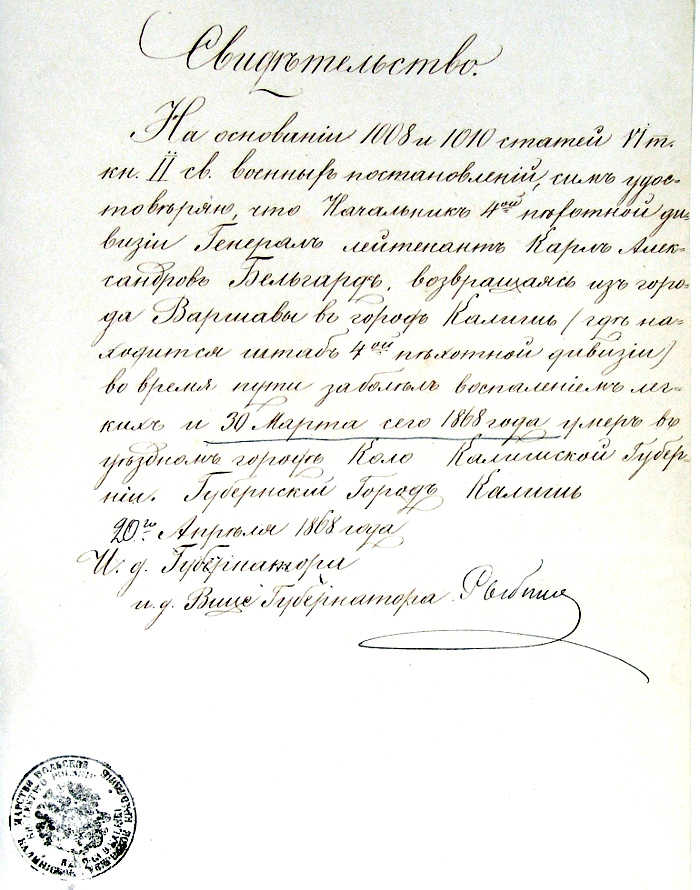 Свидѣтельство.
На основаніи 1008 и 1010 статей VI т.
кн. II св. военныхъ постановленій, симъ удос-
товѣряю, что Начальникъ 4ой пѣхотной ди-
визіи Генералъ лейтенантъ Карлъ Алек-
сандровъ Бельгардъ, возвращаясь изъ горо-
да Варшавы въ городъ Калишъ (гдѣ на-
ходится штабъ 4ой пѣхотной дивизіи)
во время пути заболѣлъ воспаленіемъ лег-
кихъ и 30 Марта сего 1868 года умеръ въ
уѣздномъ городѣ Коло Калишской Губер-
ніи. Губернскій Городъ Калишъ
20го Апрѣля 1868 года
И. д. Губернатора
и. д. Вице Губернатора